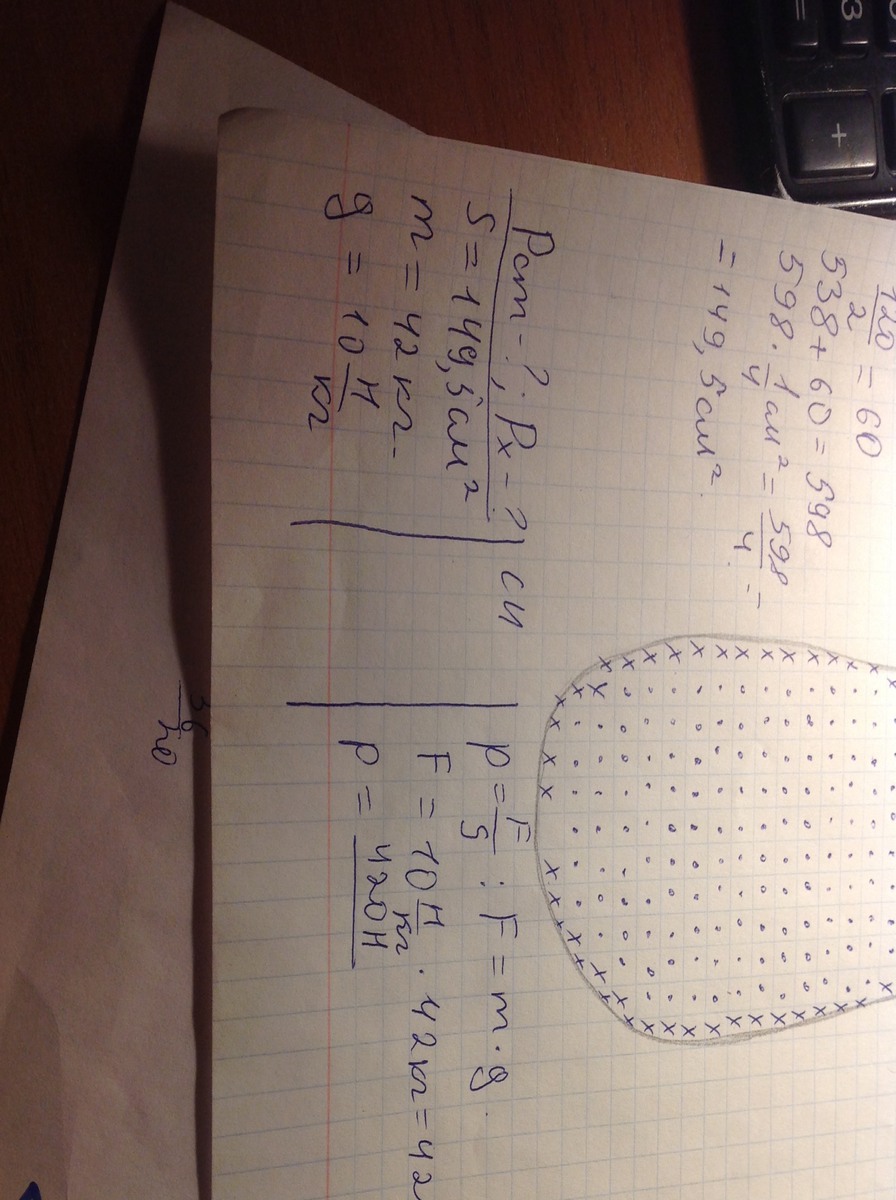 120/2 = 60
538 + 60 = 598
598 · 1/4 см² = 598/4 =
= 149,5 см².
Pст - ?, Pх - ?
S = 149,5 см²
m = 42 кг
g = 10 Н/кг
СИ
p = F/S ; F = m · g.
F = 10 Н/кг · 42 кг = 42
P = 420 Н
3
+
=